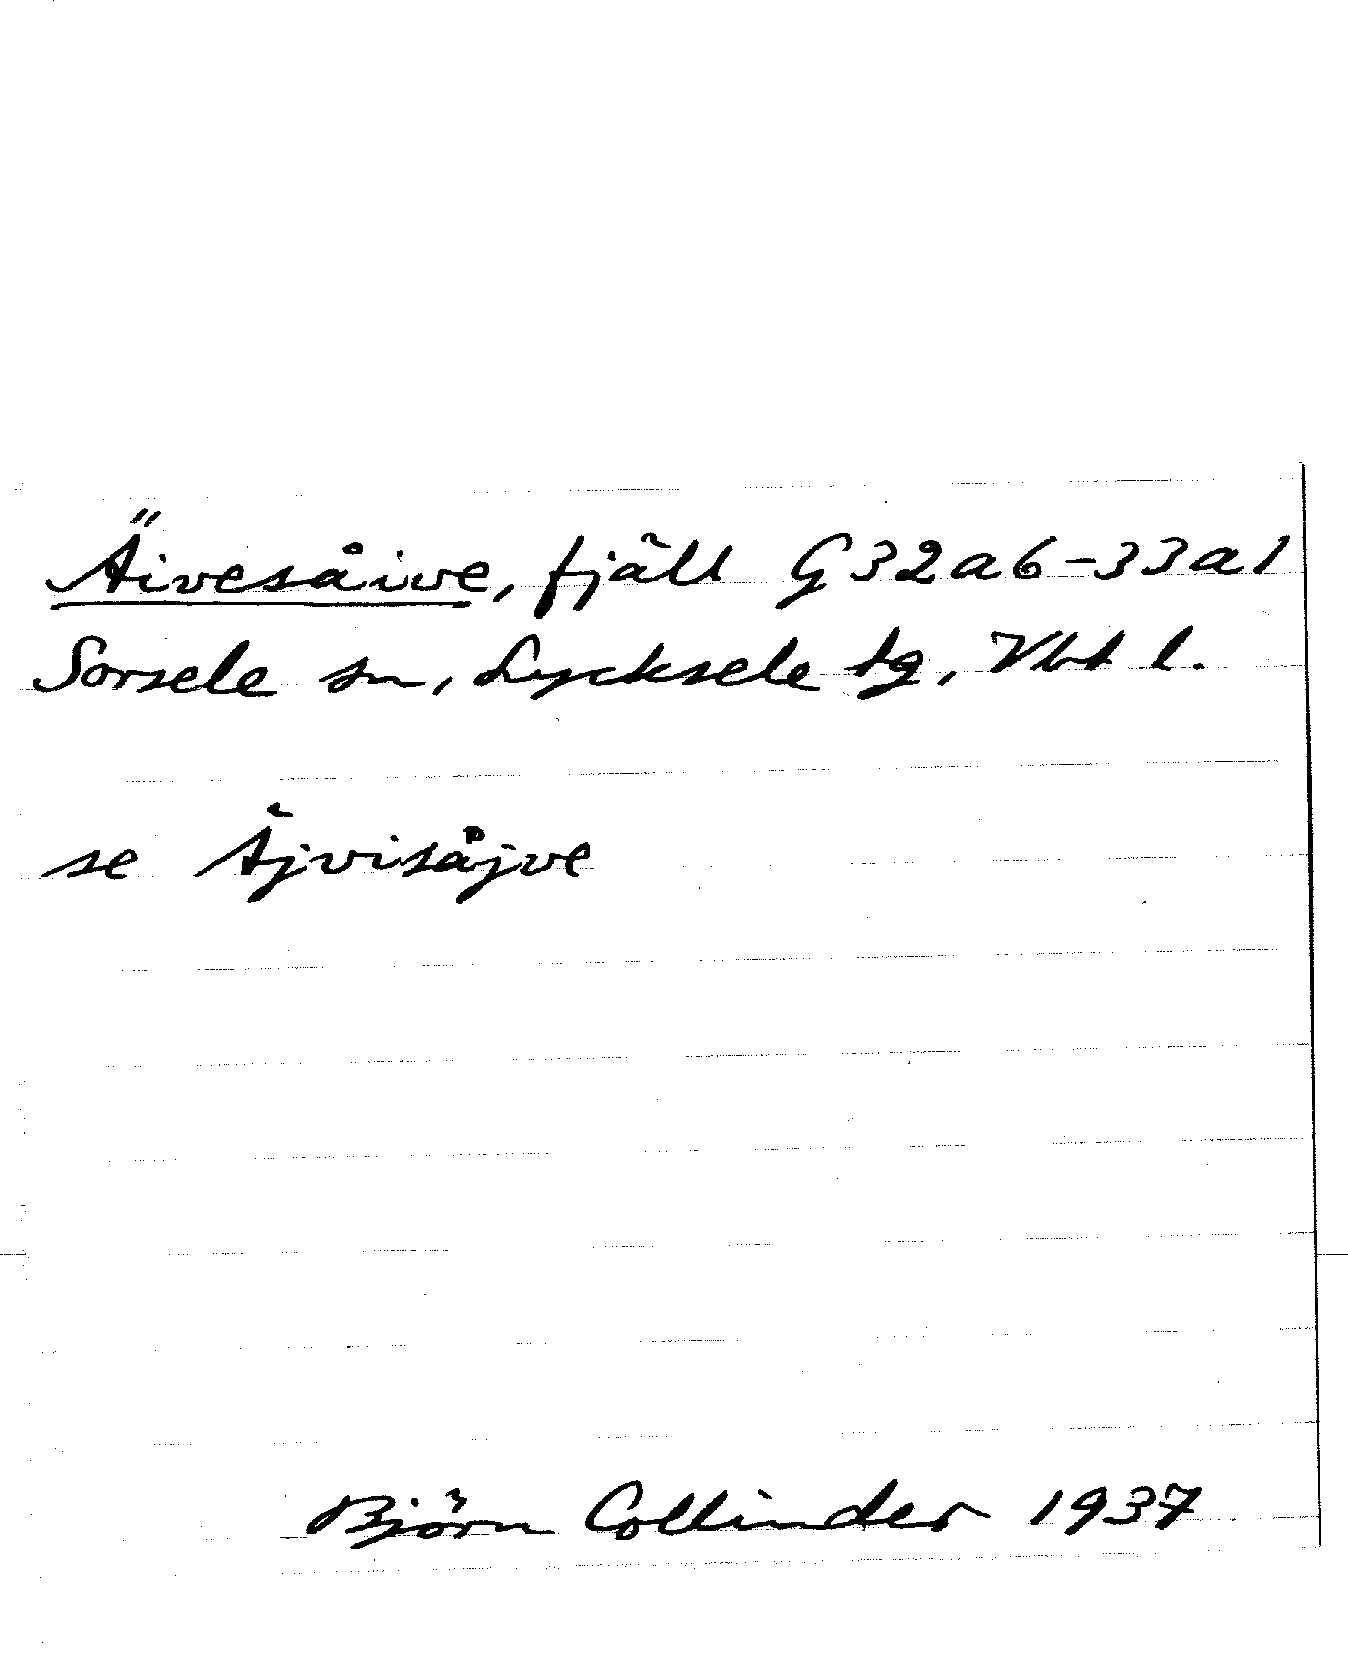 Äivesåive, fjäll G32a6-33a1
Sorsele sn, Lycksele tg, Vbt l.
se Äjvisåjve
Björn Collinder 1937